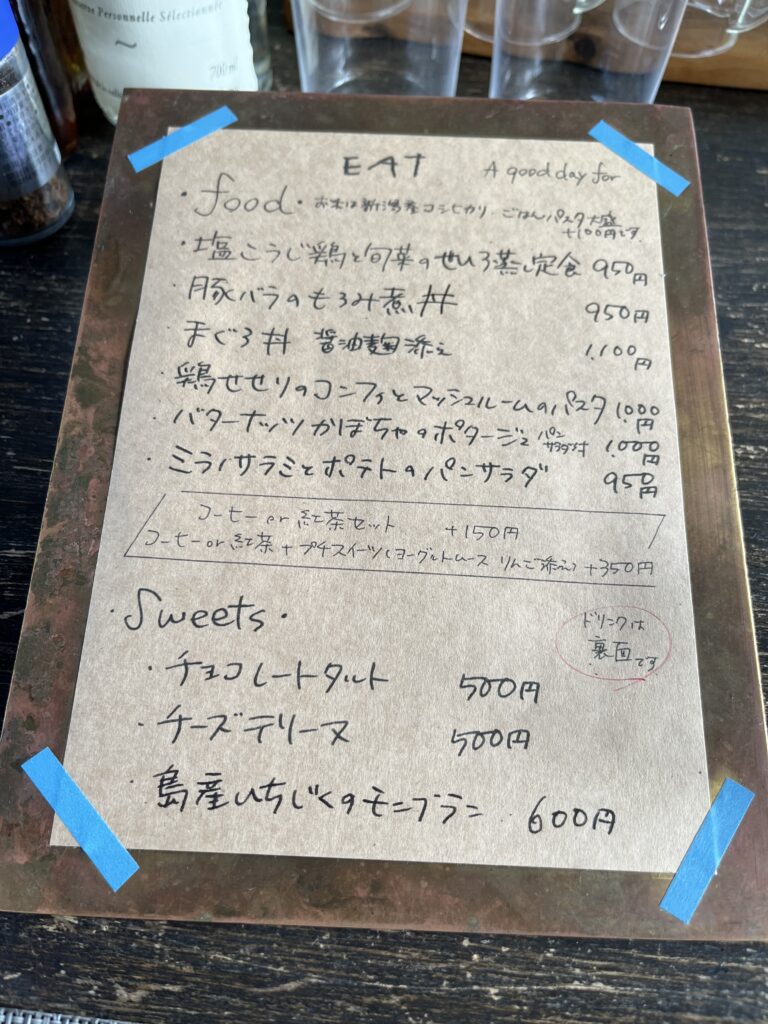 Personnelle Sélectionnée
700ml
EAT A good day for
・food・ お米は新潟産コシヒカリ・ごはんパスタ大盛
+100円です
・塩こうじ鶏と旬菜のせいろ蒸し定食 950円
・豚バラのもろみ煮丼 950円
・まぐろ丼 醤油麹添え 1,100円
・鶏せせりのコンフィとマッシュルームのパスタ 1,000円
・バターナッツかぼちゃのポタージュ パンサラダ付 1,000円
・ミラノサラミとポテトのパンサラダ 950円
コーヒー or 紅茶セット +150円
コーヒー or 紅茶 + プチスイーツ(ヨーグルトムース りんご添え) +350円
・Sweets・
ドリンクは
裏面です
・チョコレートタルト 500円
・チーズテリーヌ 500円
・島産いちじくのモンブラン 600円